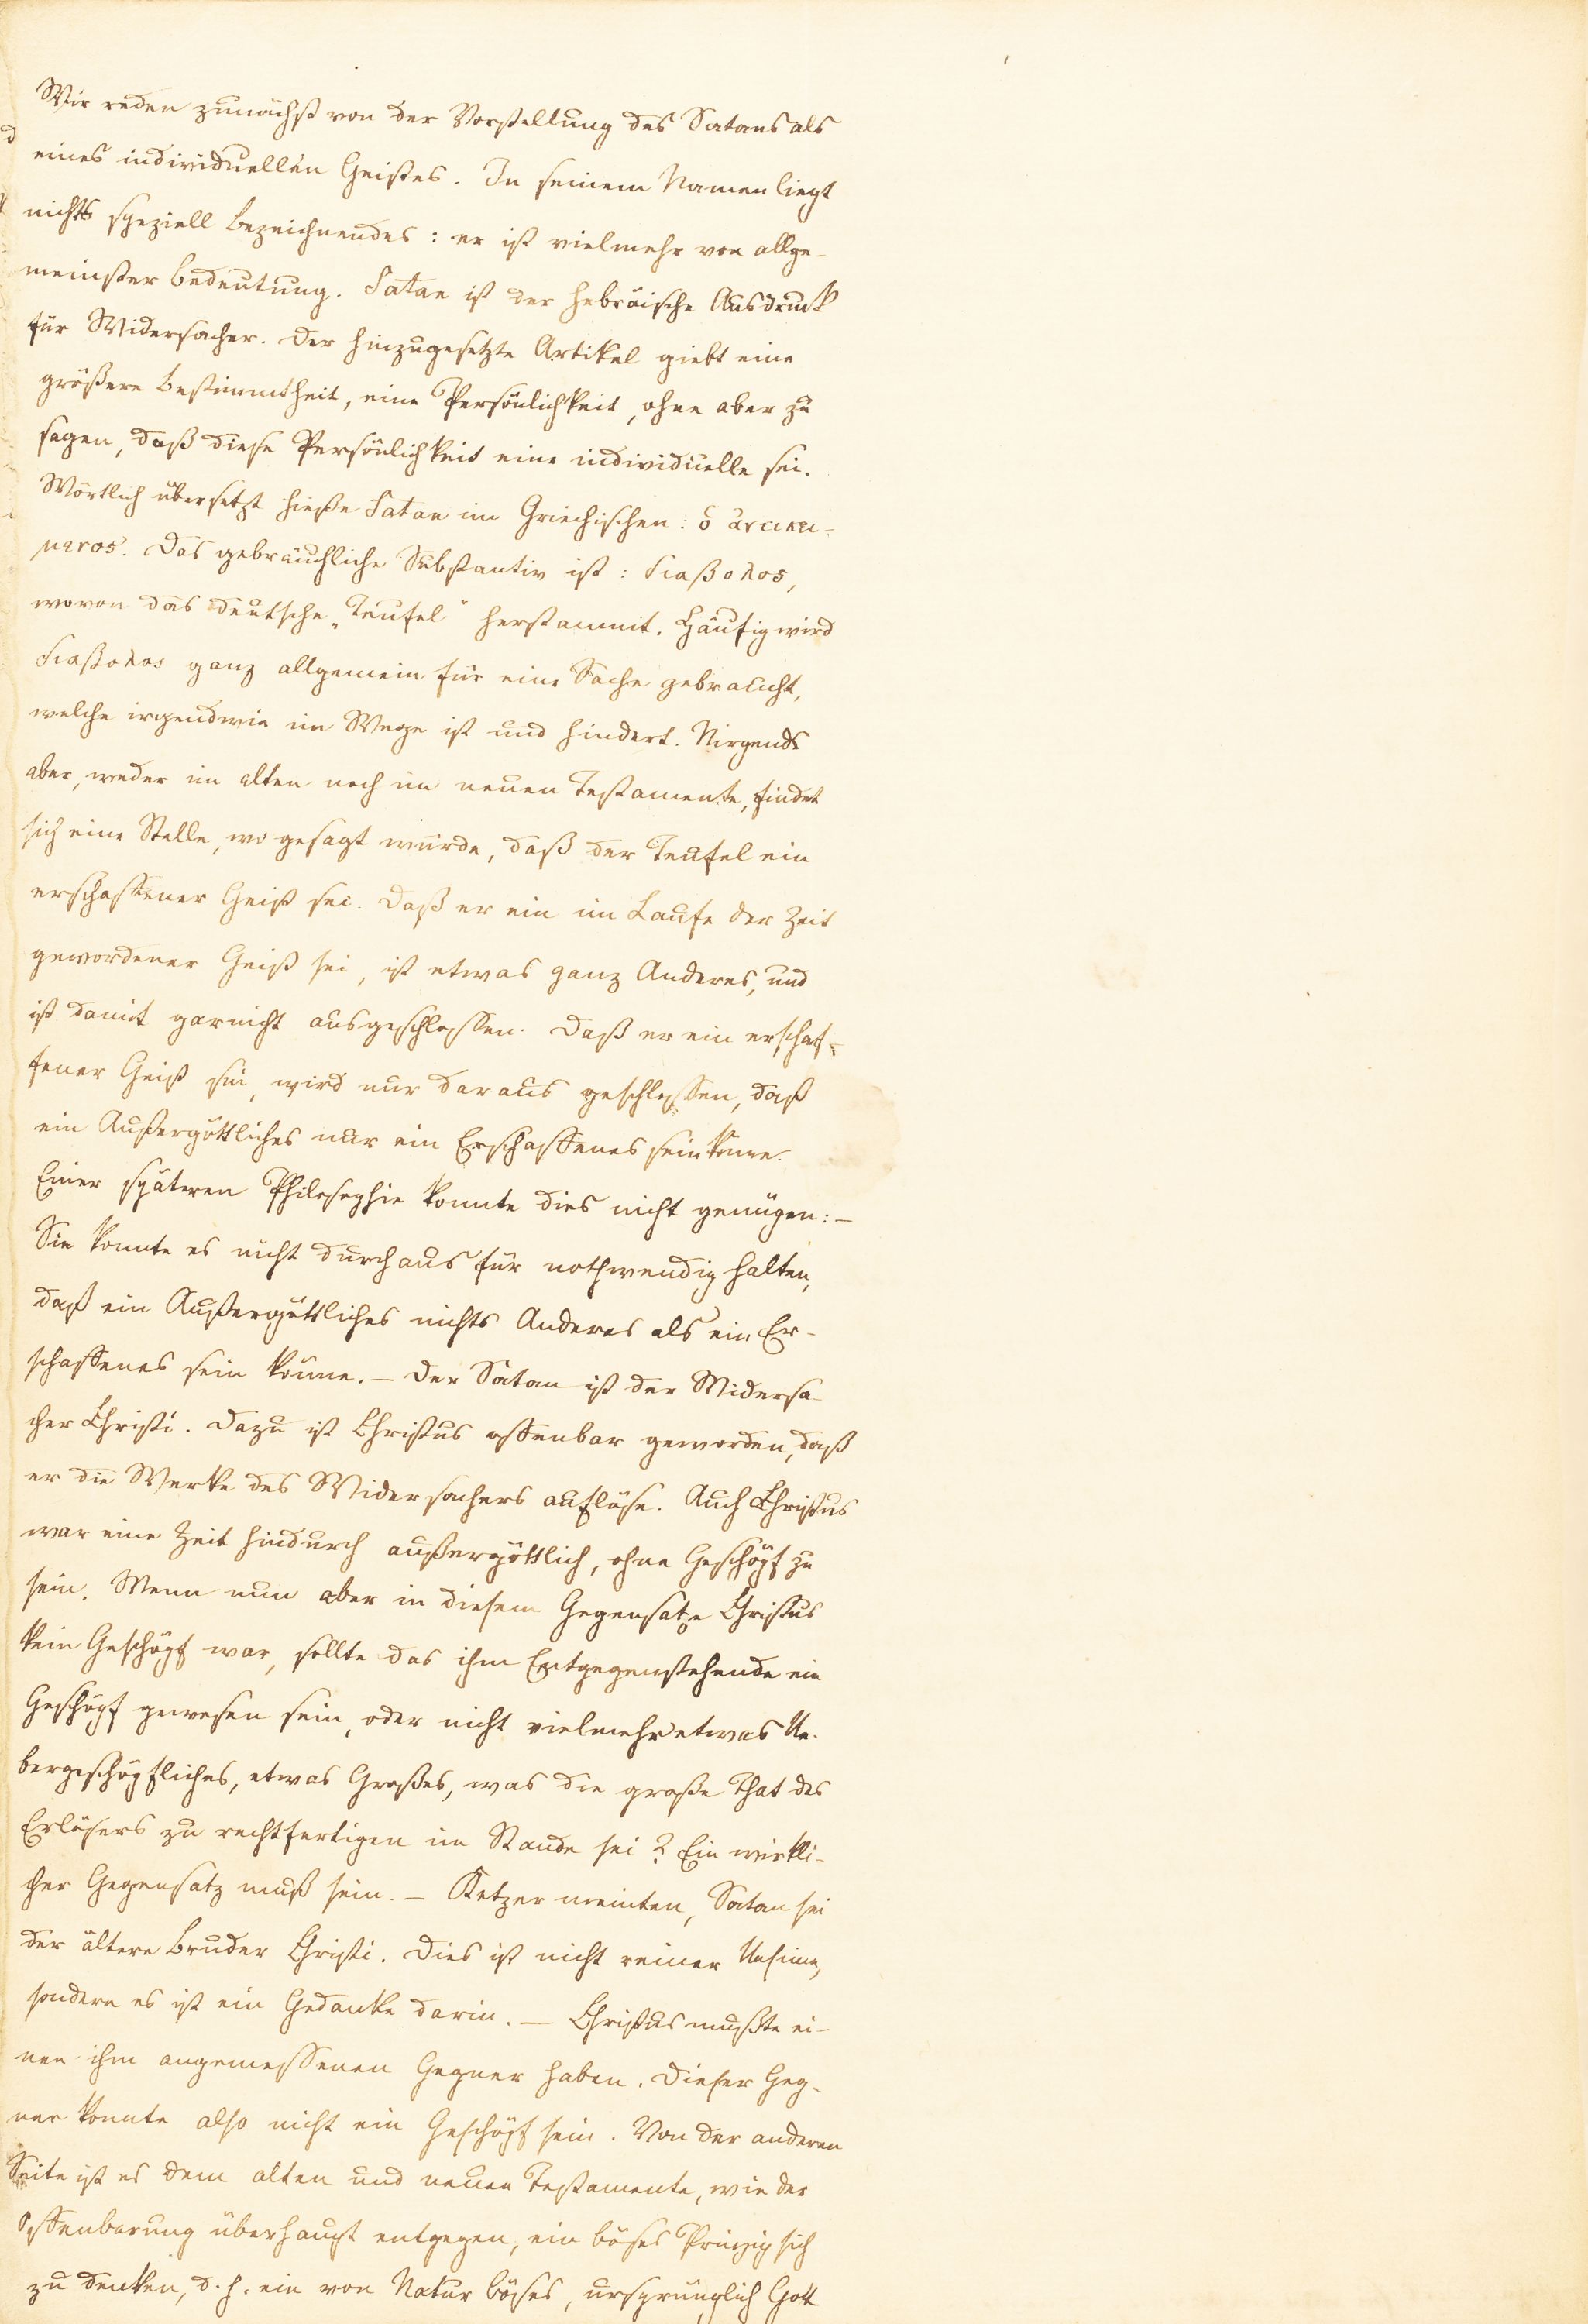 Wir reden zunächst von der Vorstellung des Satans als
eines individuellen Geistes. In seinem Namen liegt
nichts speziell Bezeichnendes: er ist vielmehr von allge-
meinster Bedeutung. Satan ist der hebräische Ausdruck
für Widersacher. Der hinzugesetzte Artikel giebt eine
größere Bestimmtheit, eine Persönlichkeit, ohne aber zu
sagen, daß diese Persönlichkeit eine individuelle sei.
Wörtlich übersetzt hieße Satan im Griechischen: ὁ ἀντικει-
μενος. Das gebräuchliche Substantiv ist: διαβολος,
wovon das deutsche „Teufel“ herstammt. Häufig wird
διαβολος ganz allgemein für eine Sache gebraucht,
welche irgendwie im Wege ist und hindert. Nirgends
aber, weder im alten noch im neuen Testamente, findet
sich eine Stelle, wo gesagt würde, daß der Teufel ein
erschaffener Geist sei. Daß er ein im Laufe der Zeit
gewordener Geist sei, ist etwas ganz Anderes, und
ist damit garnicht ausgeschlossen. Daß er ein erschaf-
fener Geist sei, wird nur daraus geschlossen, daß
ein Außergöttliches nur ein Erschaffenes sein könne.
Einer späteren Philosophie konnte dies nicht genügen: –
Sie konnte es nicht durchaus für nothwendig halten,
daß ein Außergöttliches nichts Anderes als ein Er-
schaffenes sein könne. – Der Satan ist der Widersa-
cher Christi. Dazu ist Christus offenbar geworden, daß
er die Werke des Widersachers auflöse. Auch Christus
war eine Zeit hindurch außergöttlich, ohne Geschöpf zu
sein. Wenn nun aber in diesem Gegensatze Christus
kein Geschöpf war, sollte das ihm Entgegenstehende ein
Geschöpf gewesen sein, oder nicht vielmehr etwas Ue-
bergeschöpfliches, etwas Großes, was die große That des
Erlösers zu rechtfertigen im Stande sei? Ein wirkli-
cher Gegensatz muß sein. – Ketzer meinten, Satan sei
der ältere Bruder Christi. Dies ist nicht reiner Unsinn,
sondern es ist ein Gedanke darin. – Christus mußte ei-
nen ihm angemessenen Gegner haben. Dieser Geg-
ner konnte also nicht ein Geschöpf sein. Von der anderen
Seite ist es dem alten und neuen Testamente, wie der
Offenbarung überhaupt entgegen, ein böses Prinzip sich
zu denken, d. h. ein von Natur böses, ursprünglich Gott